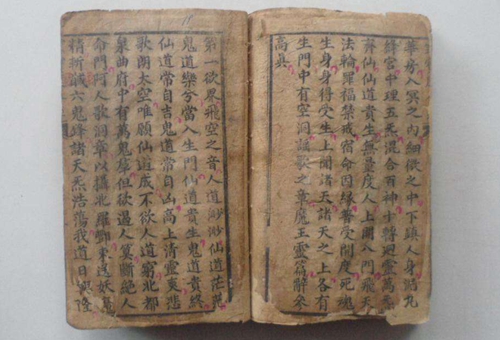 華房人冥之內細微之中下鎮人身泥丸
絳宮中理五炁混合百神十轉迴靈萬炁
齊仙仙道貴生無量度人上開八門飛天
法輪罪福禁戒宿命因緣普受開度死魂
生身身得受生上聞諸天諸天之上各有
生門中有空洞謠歌之章魔王靈篇辭參
高真
第一欲界飛空之音人道渺渺仙道茫茫
鬼道樂兮當人生門仙道貴生鬼道貴終
仙道常自吉鬼道常自凶高上清靈爽悲
歌朗太空唯願仙道成不欲人道窮北都
泉曲府中有萬鬼羣但欲遏人算斷絕人
命門阿人歌洞章以攝北羅酆束送妖魔
精斬馘六鬼鋒諸天炁浩蕩我道日興隆